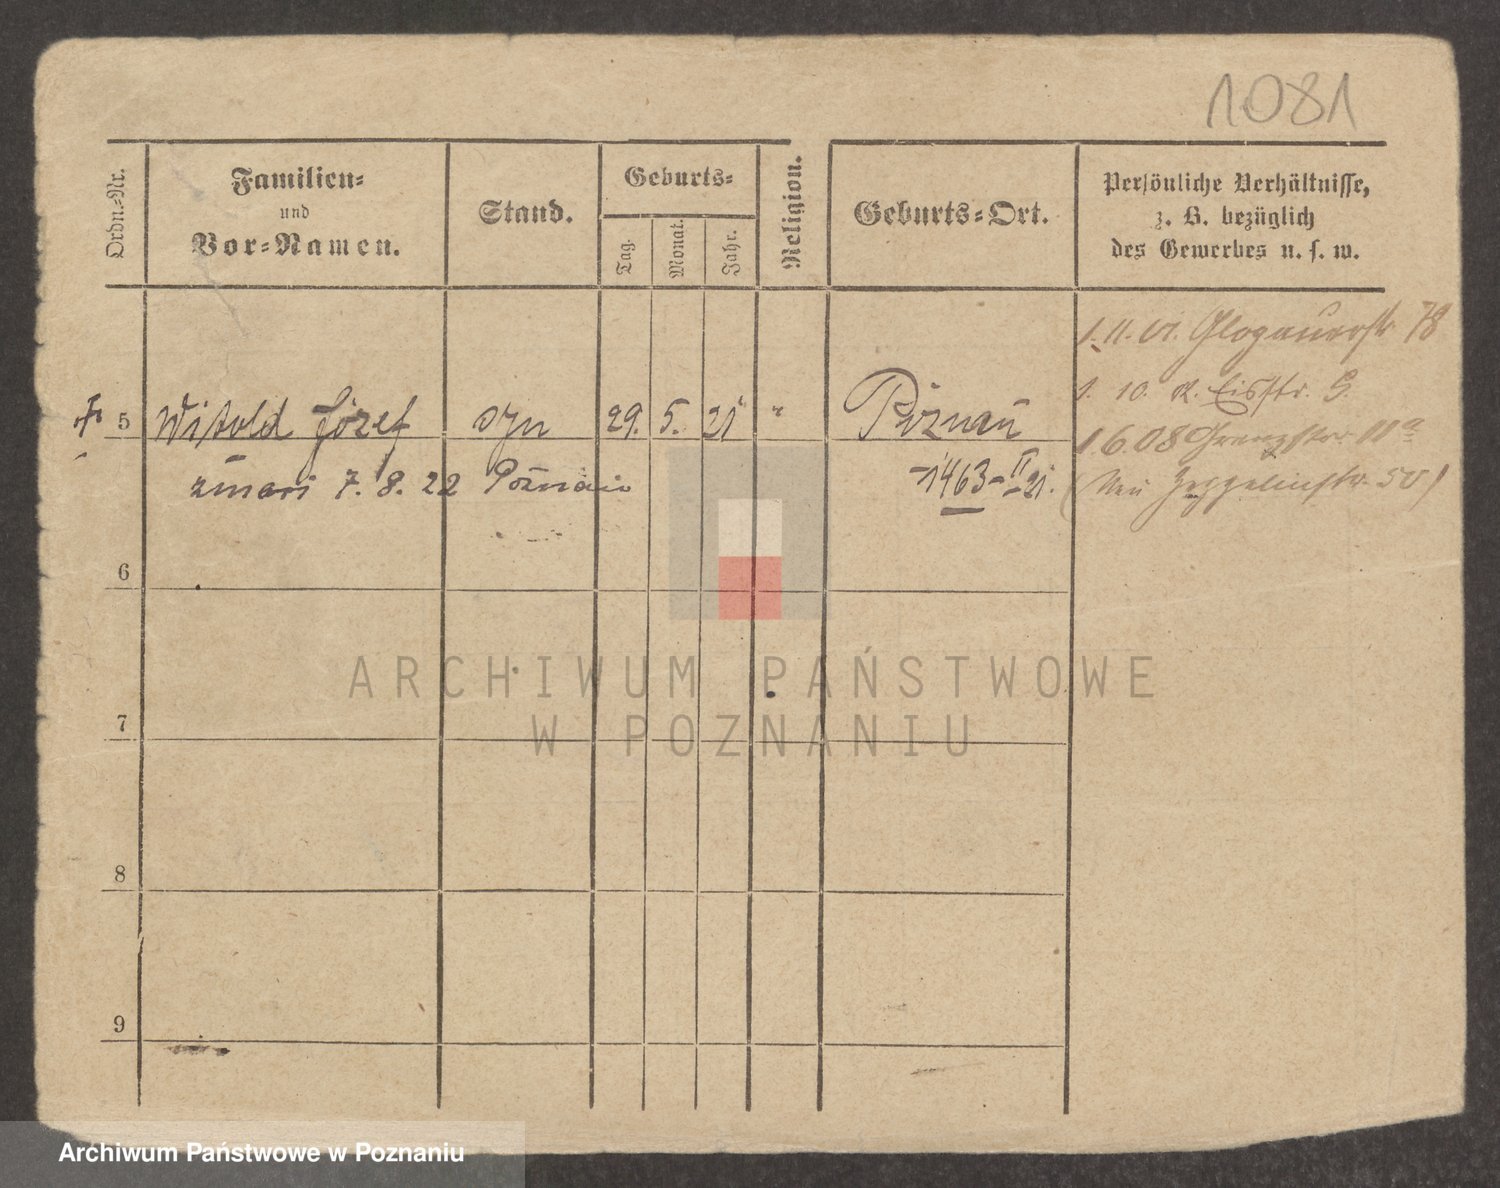 1081
Ordn.-Nr.
Familien-
und
Vor-Namen.
Stand.
Geburts-
Tag.
Monat.
Jahr.
Religion.
Geburts-Ort.
Persönliche Verhältnisse,
z. B. bezüglich
des Gewerbes u. s. w.
1. 11. 01. Glogauerstr. 78
1. 10. Eisstr. 9.
1. 6. 08 Grenzstr. 11a
(Neu Zeppelinstr. 50)
5 Witold Józef syn 29. 5. 21 " Poznań
zmarł 7. 8. 22 Poznań
1463-II-21.
6
7
8
9
ARCHIWUM PAŃSTWOWE
W POZNANIU
Archiwum Państwowe w Poznaniu